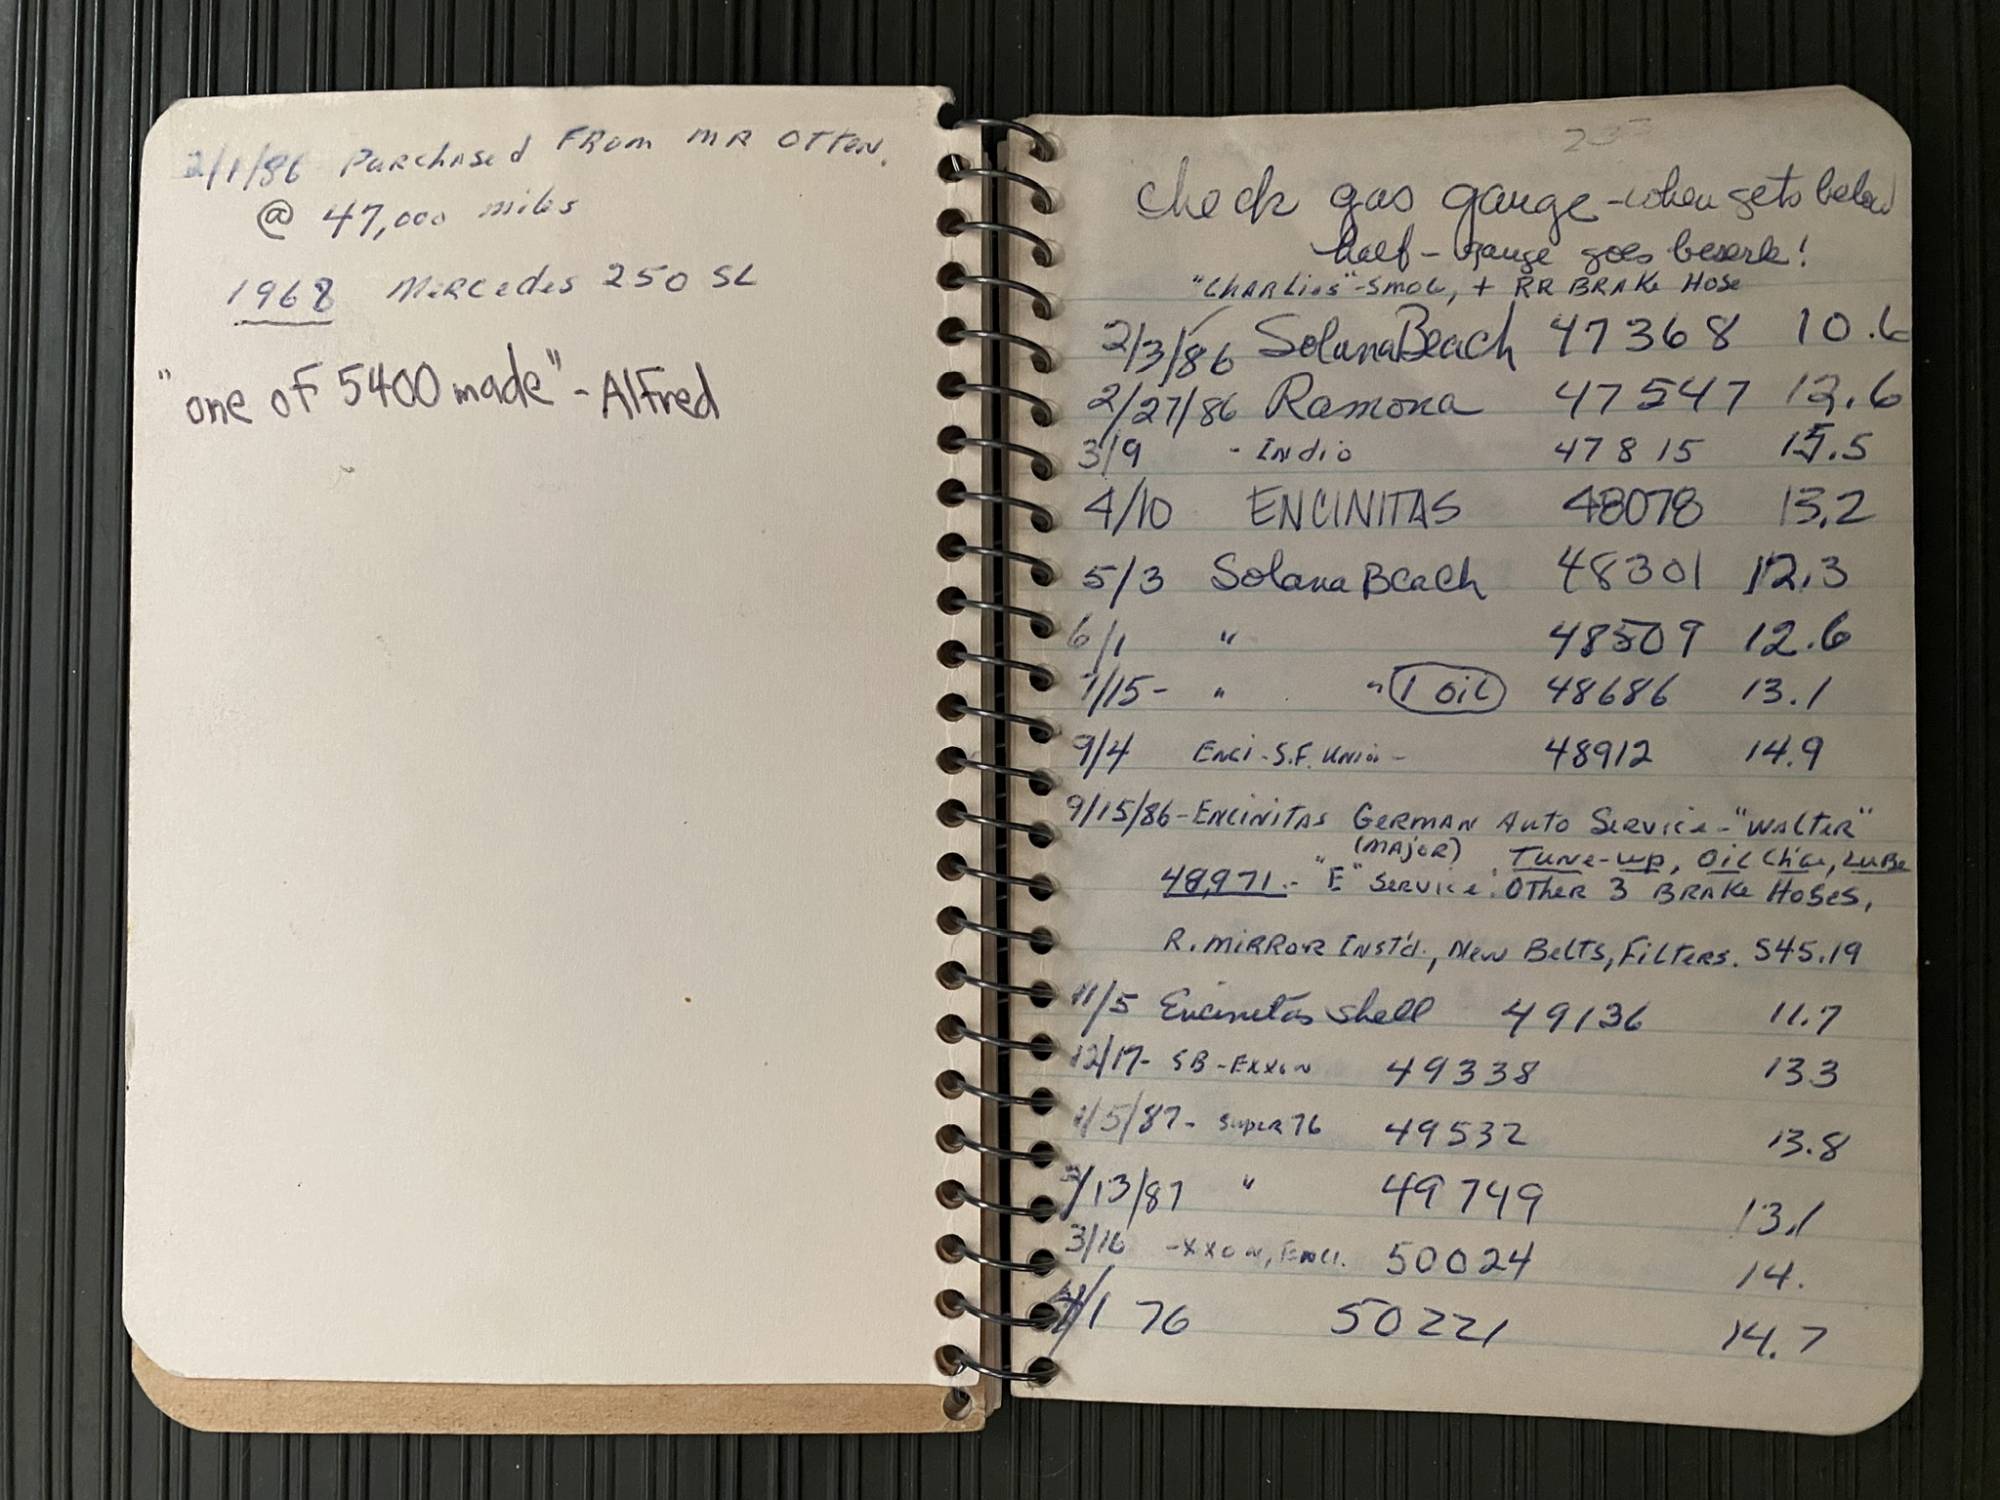 2/1/86 Purchased From MR Otten.
@ 47,000 miles
1968 Mercedes 250 SL
"one of 5400 made" - Alfred
check gas gauge - when gets below
half - gauge goes beserk!
"Charlies" - Smog, + RR BRAKE HOSE
2/3/86 Solana Beach 47368 10.6
2/27/86 Ramona 47547 12.6
3/9 - Indio 47815 15.5
4/10 ENCINITAS 48078 13.2
5/3 Solana Beach 48301 12.3
6/1 " 48509 12.6
7/15 - " " 1 oil 48686 13.1
9/4 Enci - S.F. Union - 48912 14.9
9/15/86 - Encinitas German Auto Service - "Walter"
(Major) Tune-up, Oil Ch'ge, Lube
48,971 - "E" Service: Other 3 Brake Hoses,
R. Mirror Inst'd, New Belts, Filters. 545.19
11/5 Encinitas Shell 49136 11.7
12/17 - SB - Exxon 49338 13.3
1/5/87 - Super 76 49532 13.8
2/13/87 " 49749 13.1
3/16 -xxon, Enci. 50024 14.
4/1 76 50221 14.7